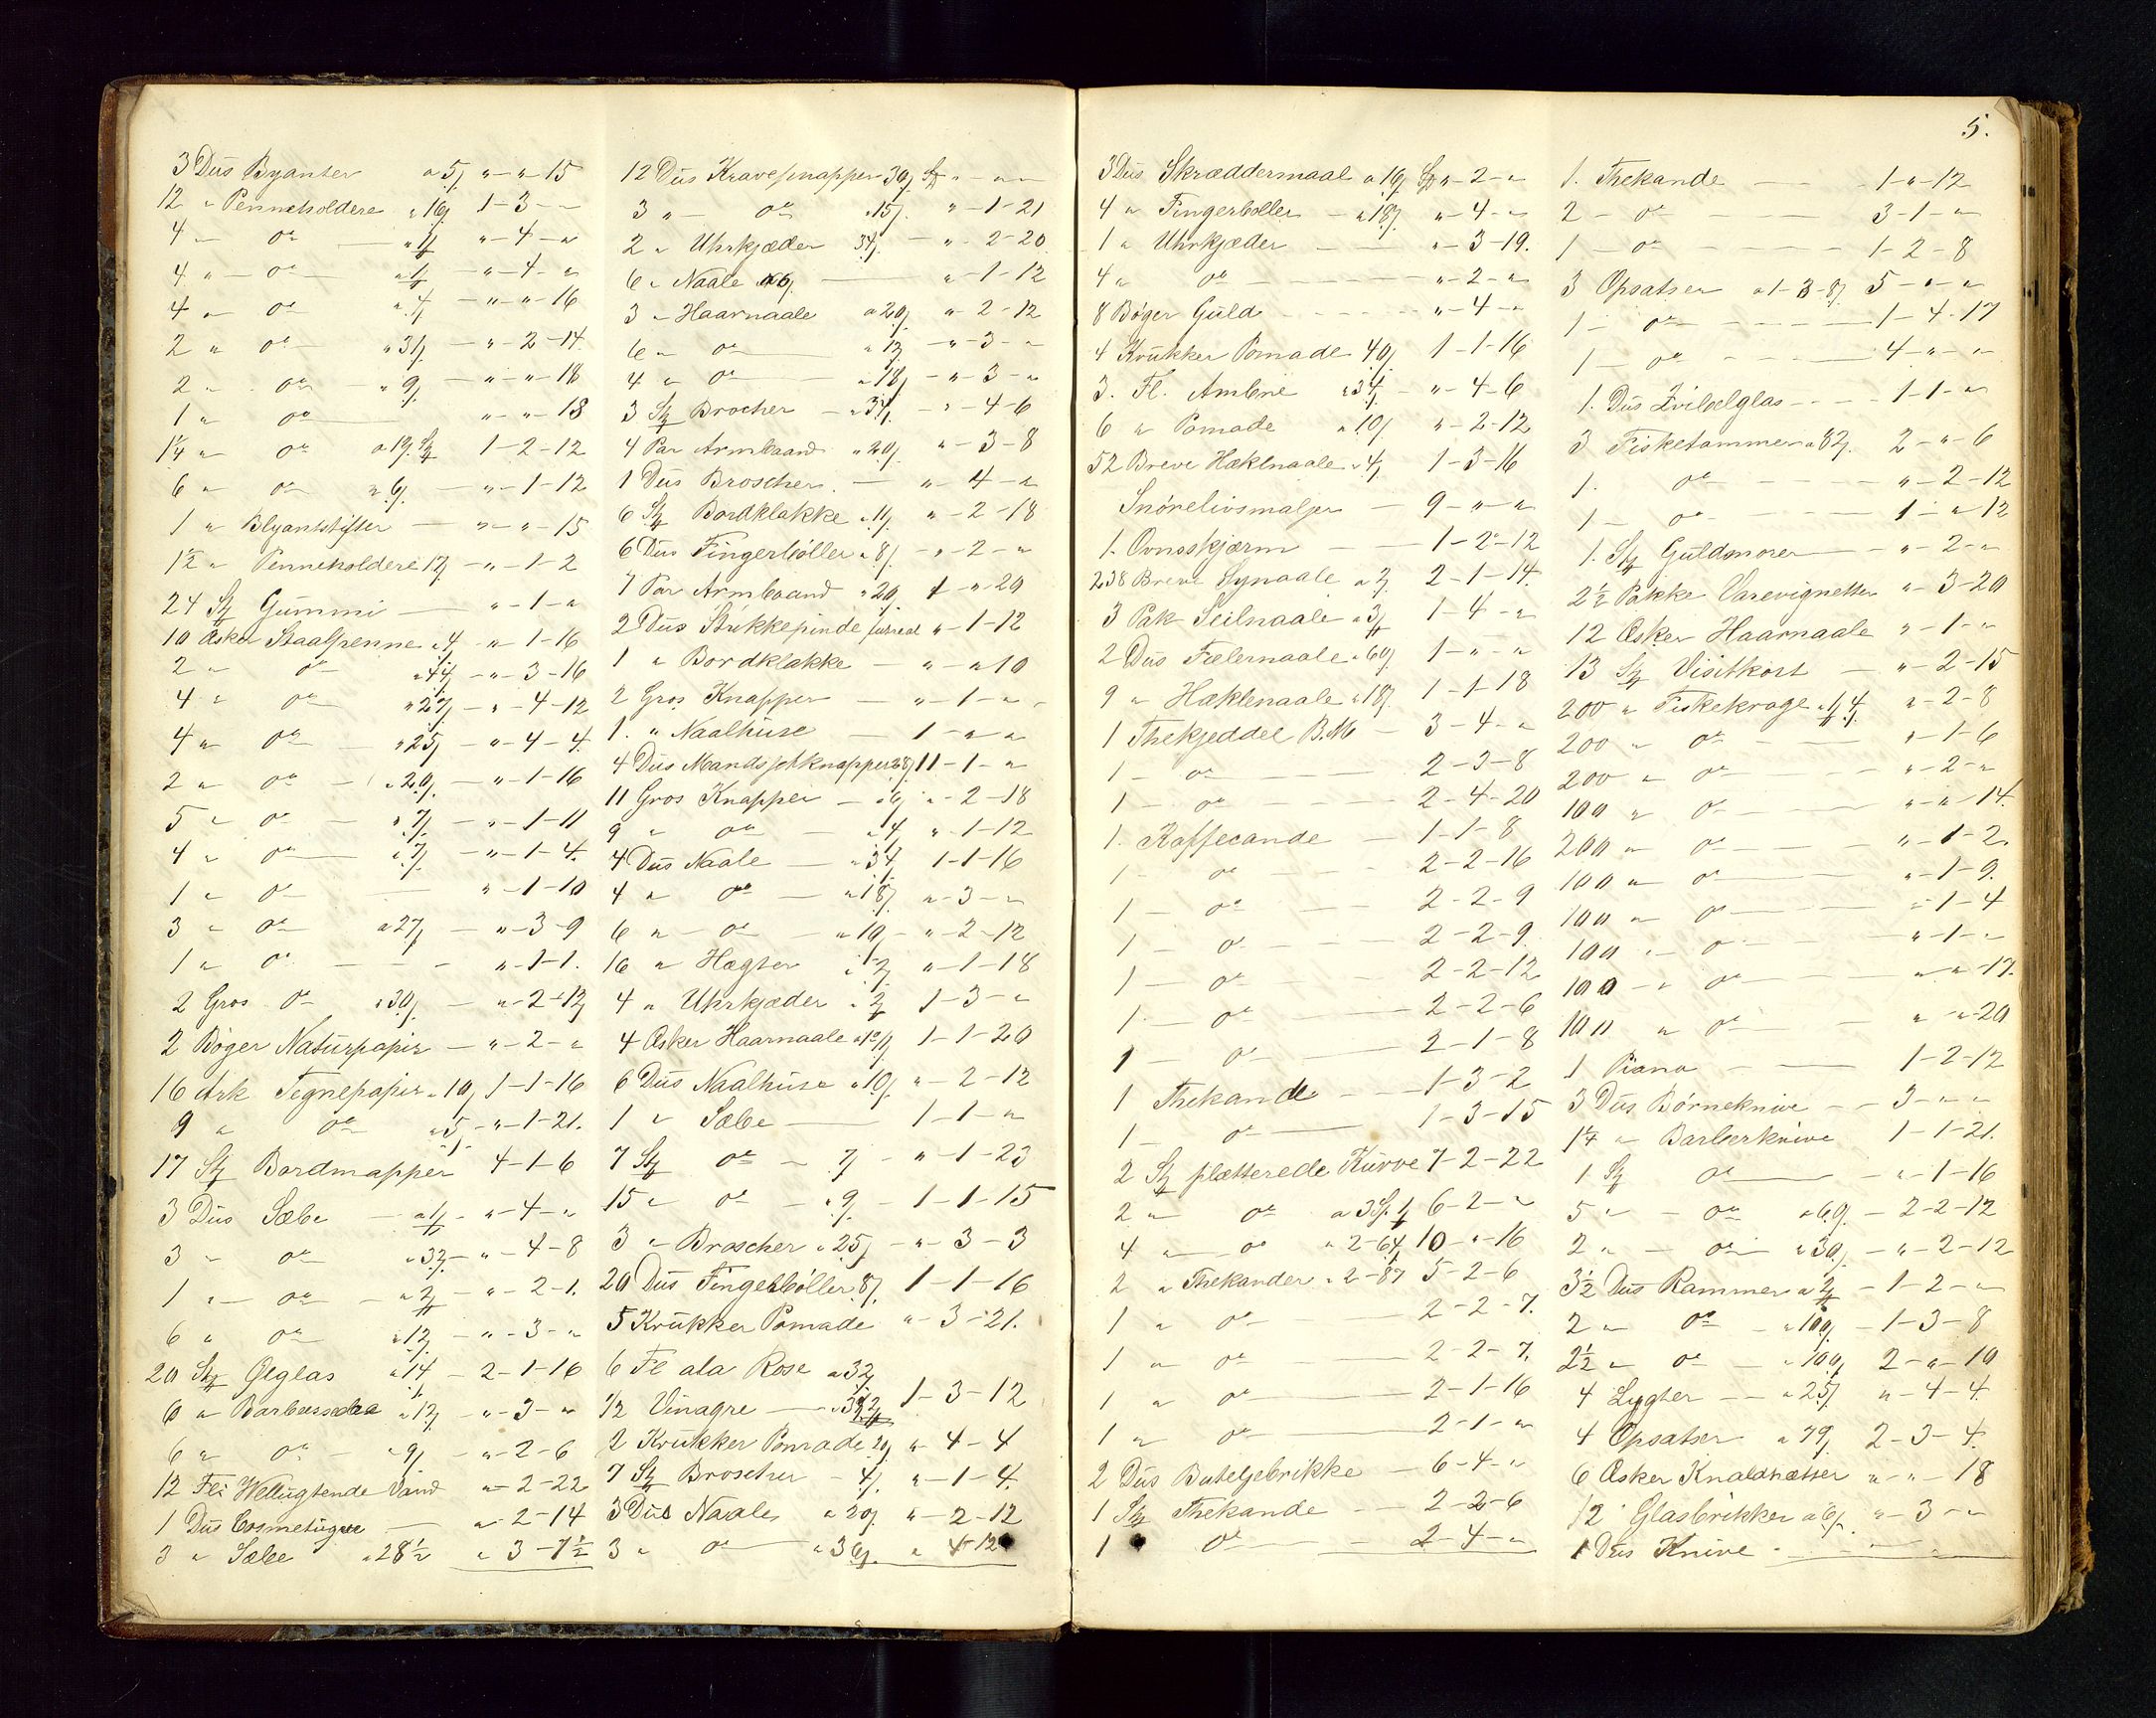 3 Dus Byanter a 5 " - " - 15
12 " Penneholdere " 16 1 - 3 - "
4 " do " 1 " - 4 - "
4 " do a 1 " - 4 - "
4 " do a 4 " - " - 16
2 " do " 31 " - 2 - 14
2 " do " 9 " - " - 18
1 " do " - " - 18
1¼ " do a 19 1 - 2 - 12
6 " do a 6 " - 1 - 12
1 " Blyantstifter " - " - 15
1½ " Penneholdere 17 " - 1 - 2
24 St Gummi " - 1 - "
10 Æsker Staalpenne a 4 " - 1 - 16
2 " do a 44 " - 3 - 16
4 " do " 27 " - 4 - 12
4 " do " 25 " - 4 - 4
2 " do " 20 " - 1 - 16
5 " do " 7 " - 1 - 11
4 " do " 7 " - 1 - 4
1 " do " - 1 - 10
3 " do a 27 " - 3 - 9
1 " do " - 1 - 1
2 Gros do a 30 " - 2 - 12
2 Bøger Naturpapir " - 2 - "
16 Ark Tegnepapir " 10 1 - 1 - 16
9 " do a 5 " - 1 - 21
17 St Bordmapper 4 - 1 - 6
3 Dus Sæbe a 1 " - 4 - "
3 " do a 32 " - 4 - 8
1 " do a 2 " - 2 - 1
6 " do a 12 " - 3 - "
20 St Ølglas a 14 2 - 1 - 16
6 " Barbersæbe a 12 " - 3 - "
6 " do " 9 " - 2 - 6
12 Fl: Vellugtende Vand " - 2 - 22
1 Dus Cosmetique " - 2 - 14
3 " Sæbe a 28½ " 3 - 7½
12 Dus Kraveknapper 30 " - " - "
3 " do " 15 " - 1 - 21
2 " Uhrkjæder 34 " - 2 - 20
6 " Naale a 6 " - 1 - 12
3 " Haarnaale a 20 " - 2 - 12
6 " do a 12 " - 3 - "
4 " do a 18 " - 3 - "
3 St Brocher " 34 " - 4 - 6
4 Par Armbaand " 20 " - 3 - 8
1 Dus Broscher " - 4 - "
6 St Bordklokke " 11 " - 2 - 18
6 Dus Fingerbøller " 8 " - 2 - "
7 Par Armbaand " 20 1 - " - 20
2 Dus Strikkepinde " - 1 - 12
1 " Bordklokke " - " 10
2 Gros Knapper " - 1 - "
1. " Naalhuse 1 - " - "
4 Dus Mandsjetknapper 28 11 - 1 - "
11 Gros Knapper a 6 " - 2 - 18
9 " do a 4 " - 1 - 12
4 Dus Naale " 34 1 - 1 - 16
4 " do " 18 " - 3 - "
6 " do " 10 " - 2 - 12
16 " Hægter " - 1 - 18
4 " Uhrkjæder " 2 1 - 3 - "
4 Æsker Haarnaale 1 - 1 - 20
6 Dus Naalhuse " 10 " - 2 - 12
1 " Sæbe 1 - 1 - "
7 St do 7 " - 1 - 23
15 " do " 9 1 - 1 - 15
3 " Broscher " 25 " - 3 - 3
20 Dus Fingerbøller 8 1 - 1 - 16
5 Krukker Pomade " - 3 - 21
6 Fl ala Rose a 32
½ Vinagre 1 - 3 - 12
2 Krukker Pomade 20 " - 4 - 4
7 St Broscher 4 " - 1 - 4
3 Dus Naale a 20 " - 2 - 12
3 " do " 36 " 4 - 12
5.
3 Dus Skræddermaal a 16 " - 2 - "
4 " Fingerbøller a 18 " - 4 - "
1 " Uhrkjæder " - 3 - 19.
4 " do " - 2 - "
8 Bøger Guld " - 4 - "
4 Krukker Pomade 40 1 - 1 - 16
3. Fl. Ambre a 34 " - 4 - 6
6 " Pomade " 10 " - 2 - 12
52 Breve Hæklnaale " 4 1 - 3 - 16
Snørelivsmaljer 9 - " - "
1. Ovnsskjærm 1 - 2 - 12
238 Breve Synaale a 2 2 - 1 - 14
3 Pak Seilnaale a 3 1 - 4 - "
2 Dus Fælernaale " 60 1 - " - "
9 " Hæklenaale " 18 1 - 1 - 18
1 Thekjeddel B.M. 3 - 4 - "
1 - do 2 - 3 - 8
1 - do 2 - 4 - 20
1. Kaffecande 1 - 1 - 8
1 - do 2 - 2 - 16
1 - do 2 - 2 - 9
1 - do 2 - 2 - 9
1 - do 2 - 2 - 12
1 - do 2 - 2 - 6
1 - do 2 - 1 - 8
1 Thekande 1 - 3 - 2
1 - do 1 - 3 - 15
2 St plætterede Kurve 7 - 2 - 22
2 " do 6 - 2 - "
4 " do " 2 - 64 10 - " - 16
2 " Thekander " 2 - 87 5 - 2 - 6
1 " do 2 - 2 - 7.
1 " do 2 - 2 - 7.
1 " do 2 - 1 - 16
1 " do 2 - 1 - "
2 Dus Buteljebrikke 6 - 4 - "
1 St Thekande 2 - 2 - 6
1 do 2 - 4 - "
1. Thekande 1 - " - 12
2 - do 3 - 1 - "
1 - do 1 - 2 - 8
3 Opsatser a 1 - 3 - 8 5 - " - "
1 - do 1 - 4 - 17
1 - do 4 - " - "
1. Dus Zvibelglas 1 - 1 - "
3 Fisketømmer a 82 2 - " - 6
1. do " - 2 - 12
1 - do 1 - " 12
1. St Guldsnorer " - 2 - "
2½ Pakke Varevignetter " - 3 - 20
12 Æsker Haarnaale " - 1 - "
13 St Visitkort " - 2 - 15
200 " Fiskekroge " - 2 - 8
200 " do " - 1 - 6
200 " do " - 2 - "
100 " do " - " - 14.
200 " do " - 1 - 2.
100 " do " - 1 - 9.
100 " do " - 1 - 4
100 " do " - 1 - "
100 " do " - " - 17.
100 " do " - " - 20
1 Piano 1 - 2 - 12
3 Dus Børneknive 3 - " - "
1¼ " Barberknive 1 - 1 - 21.
1 St do " - 1 - 16
5 " do a 60 2 - 2 - 12
2 " do a 30 " - 2 - 12
3½ Dus Rammer a 2 1 - 2 - "
2 " do " 100 1 - 3 - 8
2½ " do " 100 2 - " - 10
4 Lygter " 25 " - 4 - 4
4 Opsatser a 79 2 - 3 - 4
6 Æsker Knaldhætter " - " - 18
12 Glasbrikker a 6 " - 3 - "
1 Dus Knive